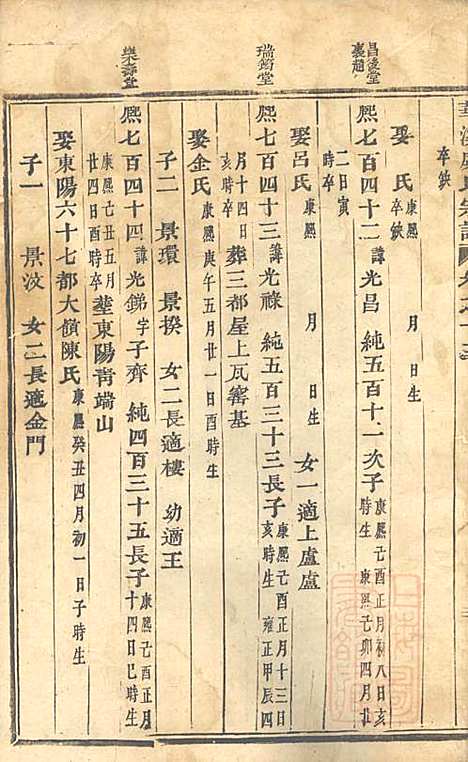 卒缺
娶 氏 康熙 月 日生 卒缺
昌後堂
熙七百四十二 諱 光昌 純五百十一次子 康熙己酉正月初八日亥時生 康熙己卯四月廿二日寅時卒
娶呂氏 康熙 月 日生 女一適上盧盧
瑞鵠堂
熙七百四十三 諱 光祿 純五百三十三長子 康熙己酉正月十三日亥時生 雍正甲辰四月十四日亥時卒 葬三都屋上瓦窰基
娶金氏 康熙庚午五月廿一日亥時生
子二 景環 景揆 女二長適樓 幼適王
樂壽堂
熙七百四十四 諱 光錦 字 子齊 純四百三十五長子 康熙己酉正月十四日巳時生 康熙己丑五月廿四日酉時卒 塟東陽青端山
娶東陽六十七都大嶺陳氏 康熙癸丑四月初一日子時生
子一 景汶 女二長適金門